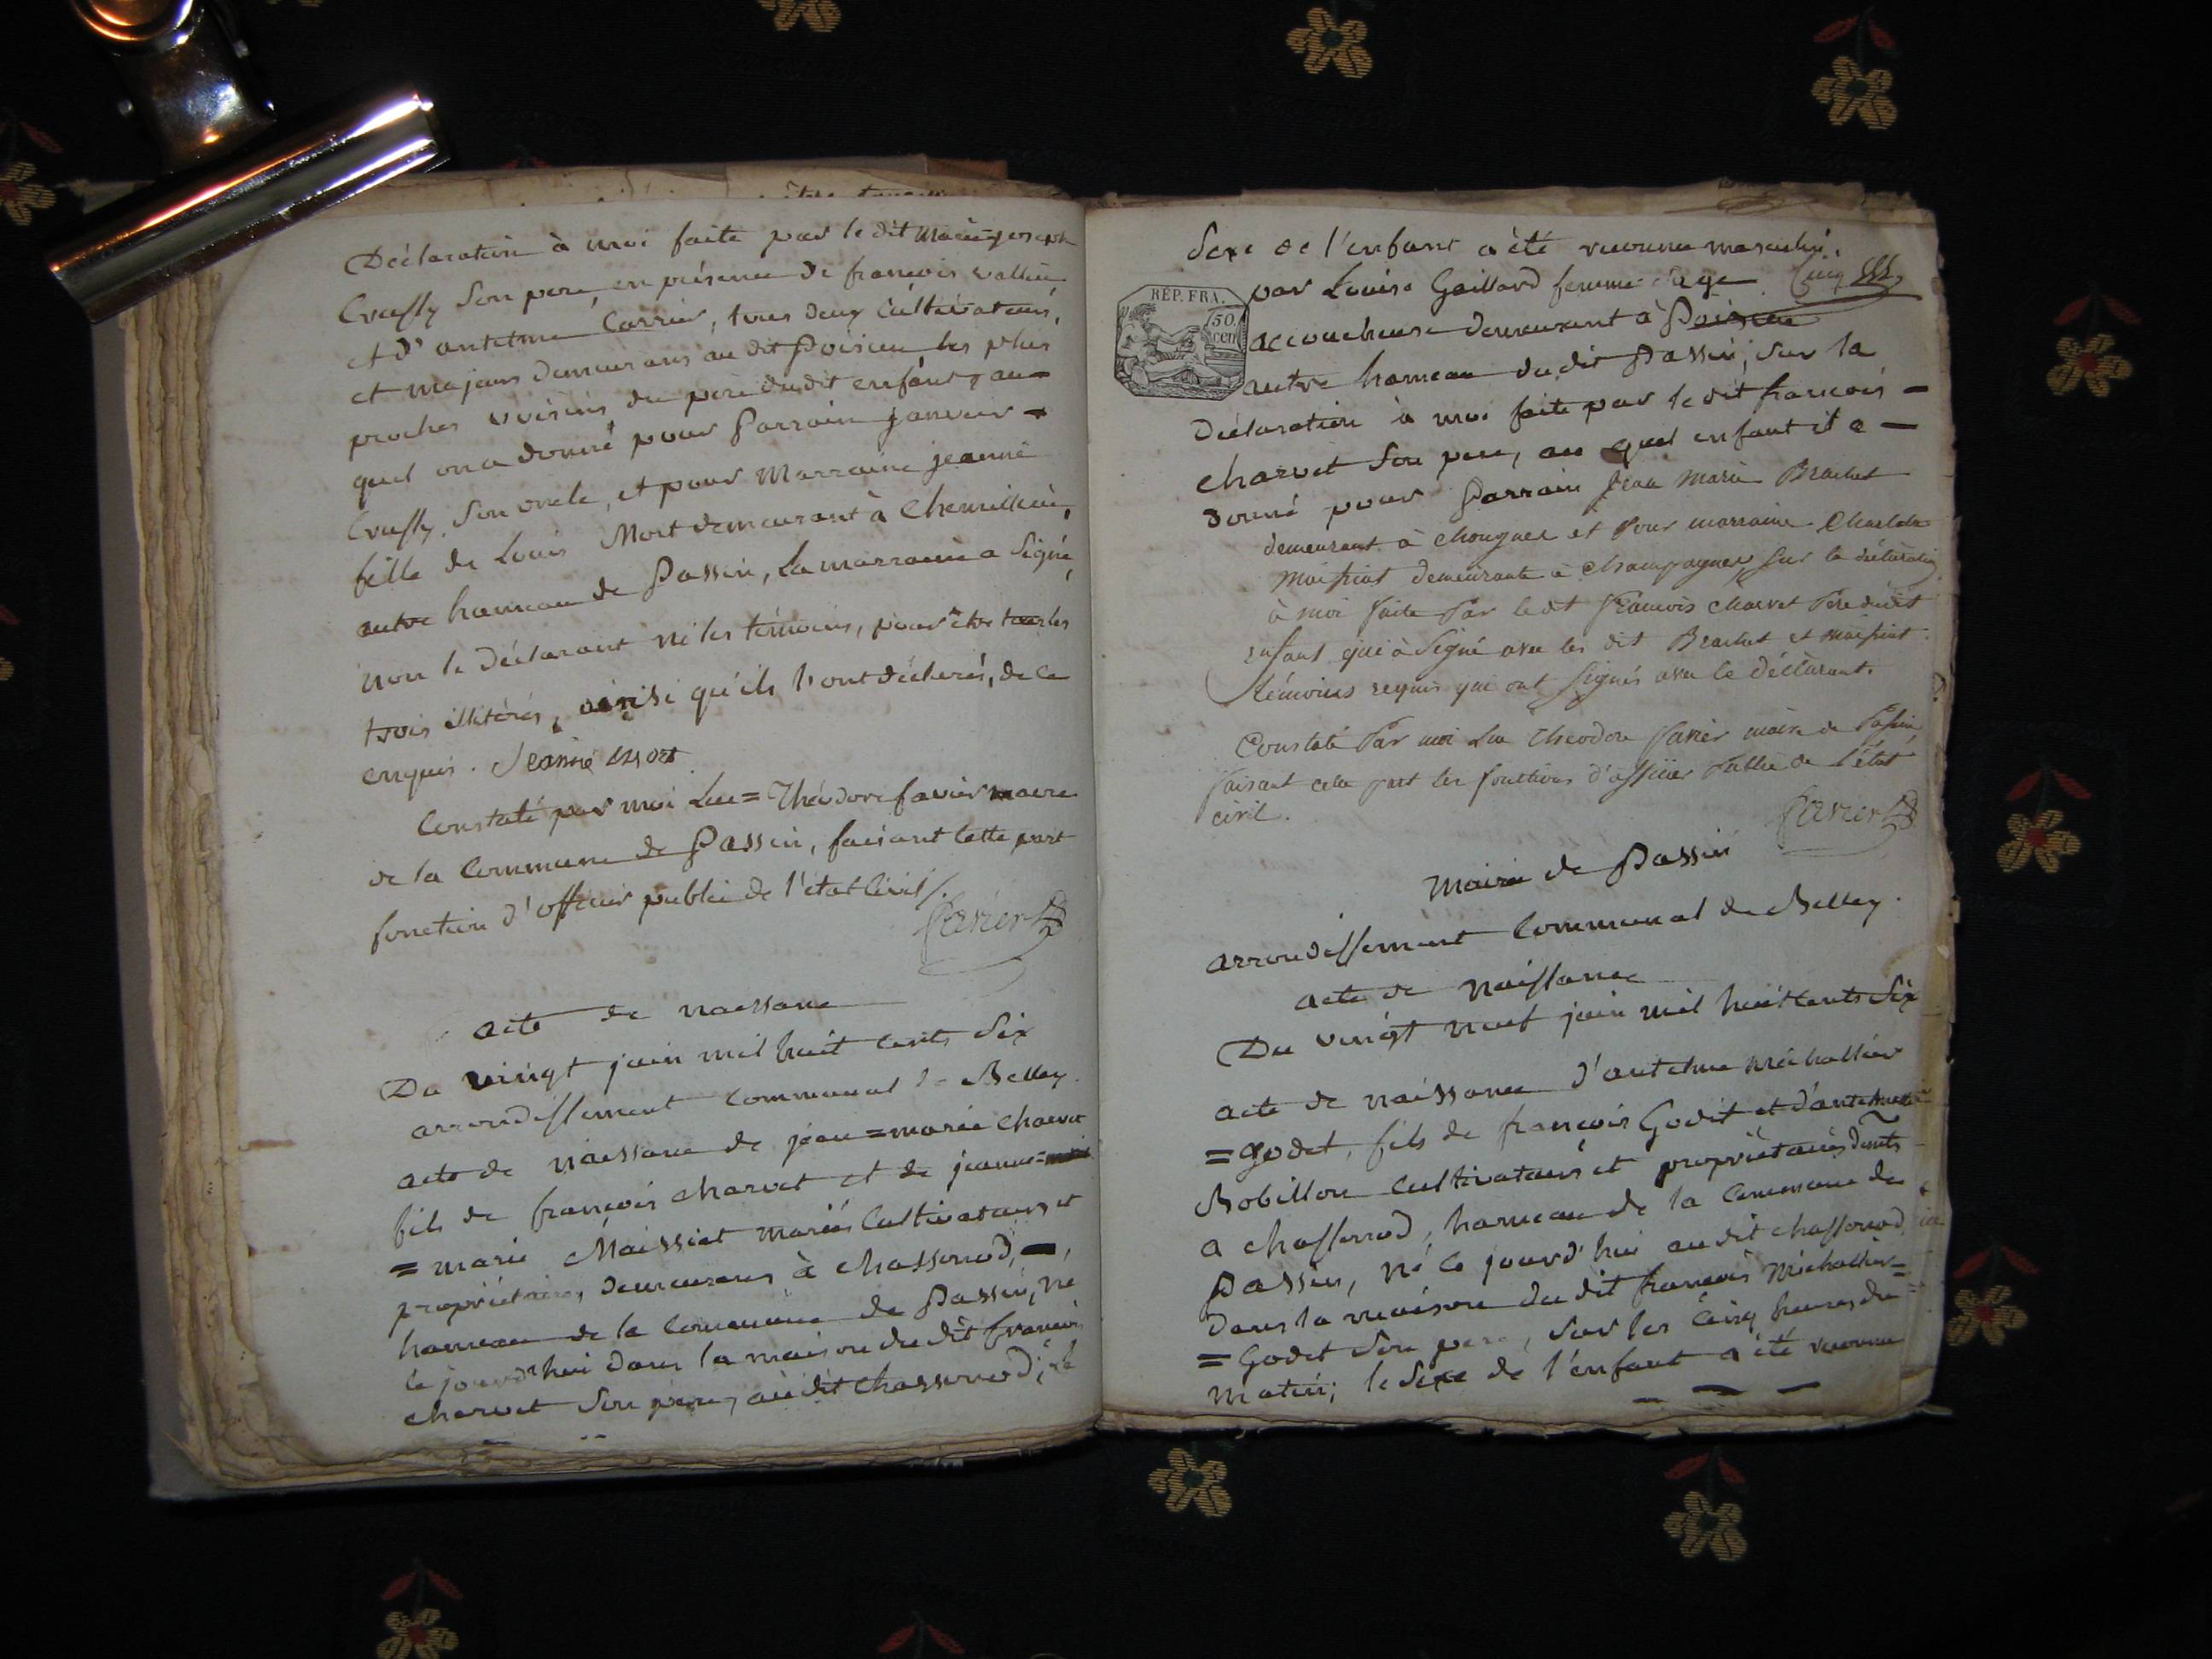 Déclaration à moi faite par le dit Marie=joseph
Crussy son pere, en présence de françois vallin
et d'antelme Carrier, tous deux cultivateurs,
et majeurs demeurans au dit Poisieu, les plus
proches voisins du pere du dit enfant, au=
quel on a donné pour Parrain janvier =
Crussy son oncle, et pour Marraine jeanne
fille de Louis Mort demeurant à Chemillieu,
autre hameau de Passin, La marraine a signé,
non le déclarant ni les témoins, pour être tous les
trois illitérés, ainsi qu'ils l'ont déclarés, de ce
enquis. Jeanne Mort
Constaté par moi Luc=Théodore favier maire
de la Commune de Passin, faisant cette part
fonction d'officier public de l'état Civil.
favier
acte de naissance
Du vingt juin mil huit cents Six
arrondissement communal de Belley.
acte de naissance de jean=marie Charvet
fils de françois charvet et de jeanne=
=marie Maissiat mariés Cultivateurs et
propriétaires, demeurans à chassonod, —,
hameau de la Commune de Passin, né
ce jourd'hui dans la maison du dit françois
charvet son pere, au dit Chassonod; Le
Sexe de l'enfant a été reconnu masculin.
par Louise Gaillard femme
RÉP. FRA.
50
cen
accoucheuse demeurant à Poisieu
autre hameau du dit Passin, sur la
Déclaration à moi faite par le dit françois =
charvet son pere, au quel enfant il a —
donné pour Parrain Jean Marie Brachet
demeurant à chougnes et Pour marraine Charlotte
Maissiat demeurante à champagne, sur la déclaration
à moi faite Par le dit françois charvet Pere du dit
enfant qui à Signé avec les dit Brachet et maissiat
témoins requis qui ont signés avec le déclarant.
Constaté Par moi Luc Theodore favier maire de Passin
faisant cette part les fonctions d'officier Public de l'état
civil.
favier
Mairie de Passin
arrondissement Communal de Belley.
acte de naissance
Du vingt neuf juin mil huit cents Six
acte de naissance d'antelme Michallier
=Godet, fils de françois Godet et d'antelmette
Robillon Cultivateurs et propriétaires dmts
a chassonod, hameau de la Commune de
Passin, né ce jourd'hui au dit chassonod,
dans la maison du dit françois Michallier=
=Godet son pere, sur les Cinq heures du=
matin; le Sexe de l'enfant a été reconnu